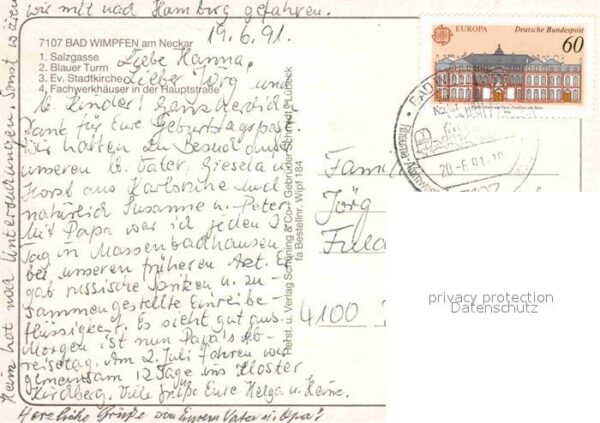 wir mit nach Hamburg gefahren.
19.6.91.
7107 BAD WIMPFEN am Neckar
1. Salzgasse
2. Blauer Turm
3. Ev. Stadtkirche
4. Fachwerkhäuser in der Hauptstraße
Liebe Hanna,
Lieber Jörg und
lb. Kinder! Ganz herzlichen
Dank für Eure Geburtstagspost.
Wir hatten den Besuch durch
unseren lb. Vater, Giesela u.
Horst aus Karlsruhe und
natürlich Susanne u. Peter.
Mit Papa war ich jeden 2.
Tag in Massenbachhausen
bei unseren früheren Arzt. Er
gab russische Spritzen u. zu-
sammengestellte Einreibe-
flüssigkeit. Es sieht gut aus.
Morgen ist nun Papa's Ab-
reisetag. Am 2. Juli fahren wir
gemeinsam 12 Tage ins Kloster
Kirchberg. Viele Grüße Eure Helga u. Heinz.
Herzliche Grüße von Eurem Vater u. Opa!
Heinz hat noch Untersuchungen, sonst wären
Herst. u. Verlag Schöning & Co + Gebrüder Schmidt, Lübeck
Bestellnr. Wipf 184
EUROPA Deutsche Bundespost
60
20.-6.91.-10
7107
Famili
Jörg
Fuld
4100
privacy protection
Datenschutz